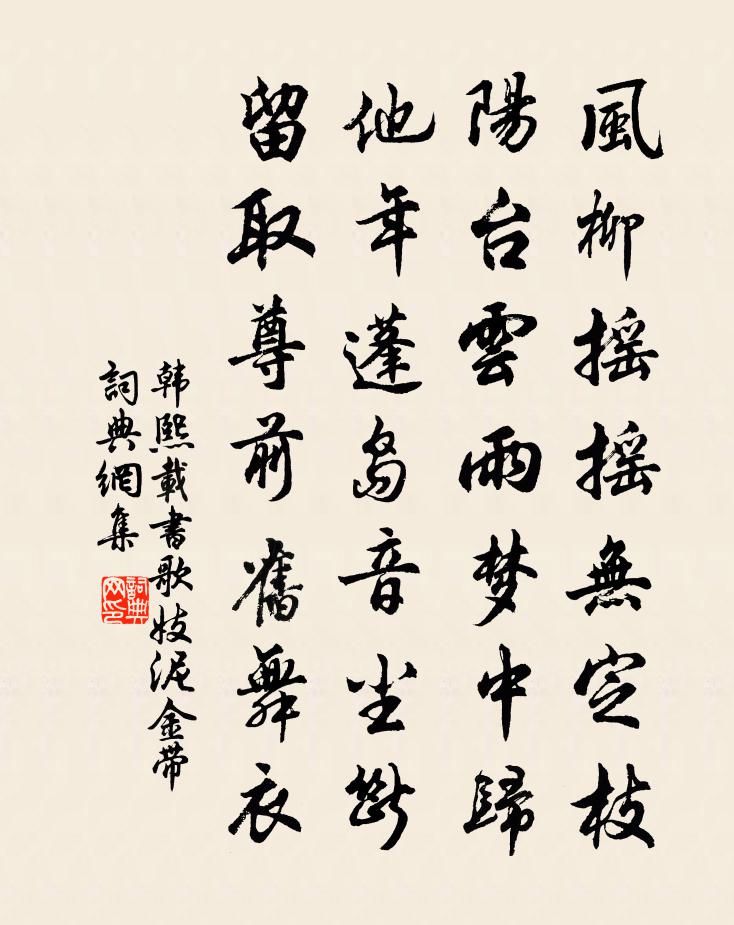 風柳搖搖無定枝
陽台雲雨夢中歸
他年蓬島音塵斷
留取尊前舊舞衣
韩熙載書歌妓泥金带
詞典網集
詞典網印